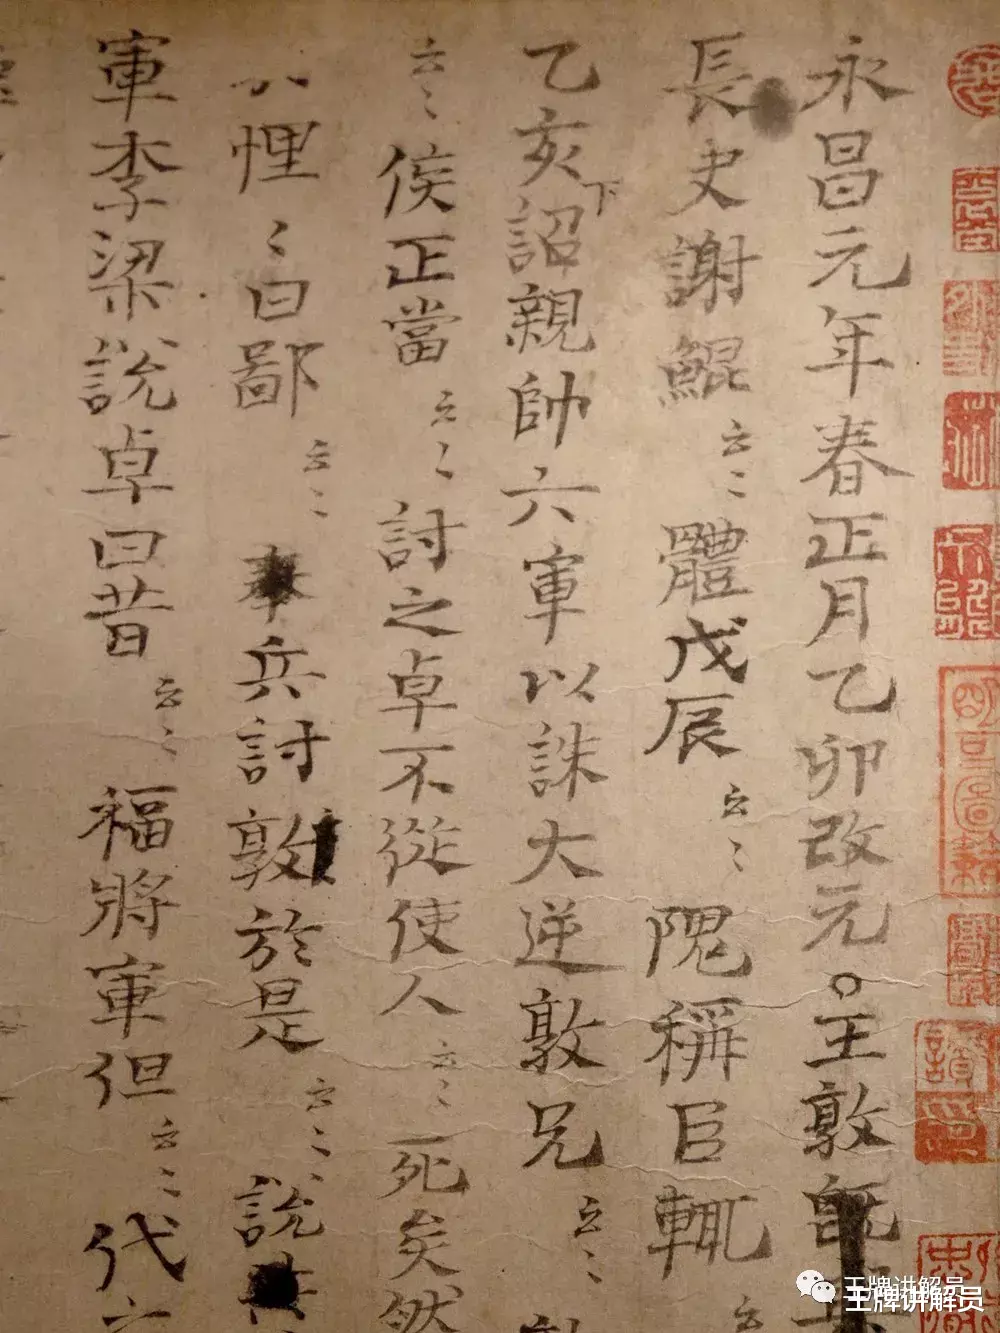 永昌元年春正月乙卯改元。王敦既
長史謝鯤云云體戊辰云云隗稱臣輒云
乙亥下詔親帥六軍以誅大逆敦兄云云
云云侯正當云云討之卓不從使人云云死矣然
狸狸曰鄙云云奉兵討敦於是云云說
軍李梁說卓曰昔云云福將軍但云云代
王牌讲解员
王牌讲解员